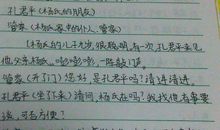 孔君平（杨氏的朋友）
管家（杨氏家中的仆人、管家）
（杨氏的儿子九岁，很聪明，有一次，孔君平来见
他父亲杨氏。啪啪啪，一阵敲门。
管家（开了门）您好，是孔君平吗？请进请进。
孔君平（坐了下来）请问，杨氏在吗？我找他有事要
谈，可否方便？